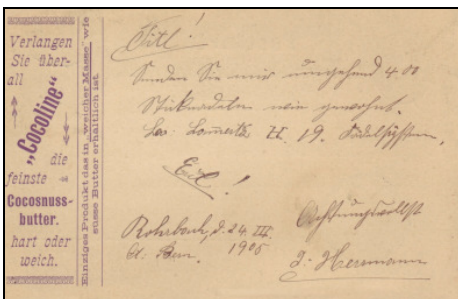 Verlangen
Sie über-
all
„Cocoline“
die
feinste
Cocosnuss-
butter.
hart oder
weich.
Einziges Produkt das in „weicher Masse“ wie
süsse Butter erhältlich ist.
Titl!
Senden Sie mir umgehend 400
wie gewohnt.
II 19.
Eil!
Rohrbach, d. 24 III
Ct. Bern. 1905
Achtungsvollst
J: Herrmann